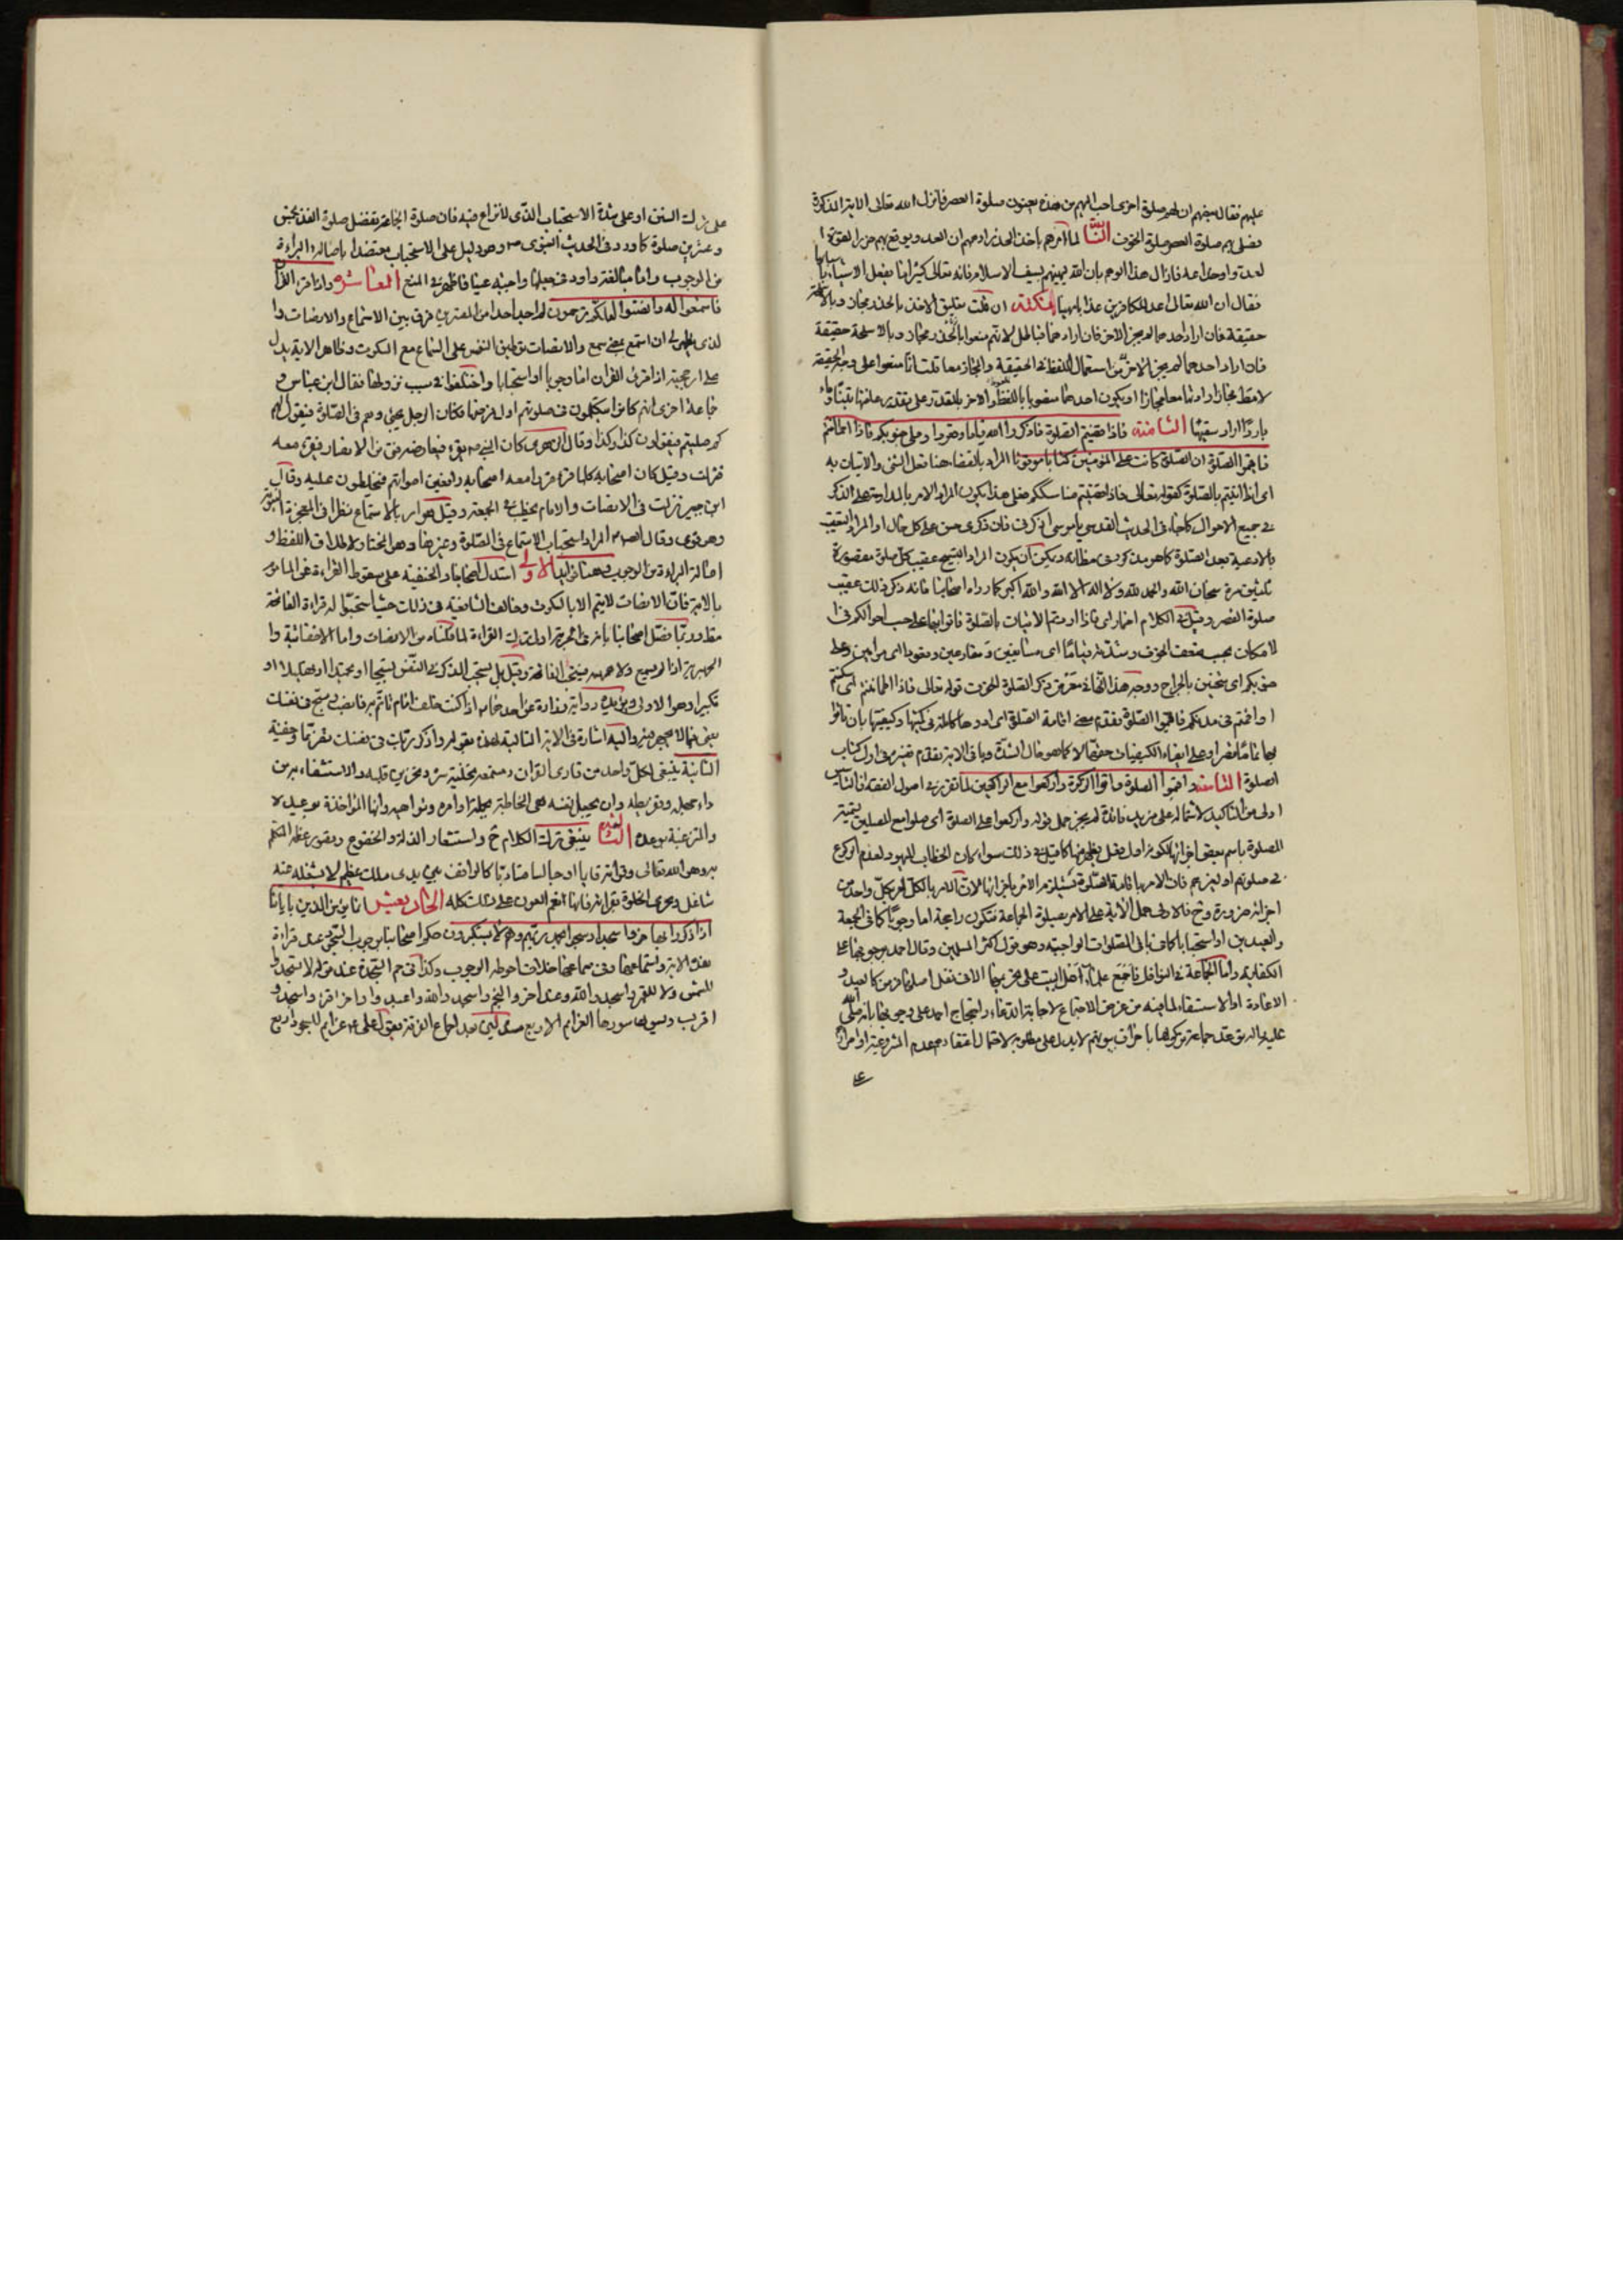 عليهم فقال بعضهم ان لهم صلوة اخرى احب اليهم من هذه يعنون صلوة العصر فانزل الله تعالى الاية المذكورة
فصلى بهم صلوة العصر صلوة الخوف الثالث لما امرهم باخذ الحذر اوهم ان العدو يوقع بهم
فقال ان الله تعالى اعد للكافرين عذابا مهينا ان قلت تعليق الاخذ بالحذر مجاز وبالاسلحة
حقيقة فان اراد احدهما لم يجز الاخر فان ارادهما فباطل لانتم منعوا بالحذر مجاز وبالاسلحة حقيقة
فان اراد احدهما لم يجز الاخر من استعمال اللفظ في الحقيقة والمجاز معا قلت انما منعوا على وجه الحقيقة
الثامنة فاذا قضيتم الصلوة فاذكروا الله قياما وقعودا وعلى جنوبكم فاذا اطمأننتم
فاقيموا الصلوة ان الصلوة كانت على المؤمنين كتابا موقوتا المراد بالقضاء هنا فعل الشئ والاتيان به
اى اذا اتيتم بالصلوة كقوله تعالى فاذا قضيتم مناسككم فعلى هذا يكون المراد الامر بالمداومة على الذكر
في جميع الاحوال كما جاء في الحديث القدسي يا موسى اذكرني فان ذكرى حسن على كل حال او المراد التعقيب
بالادعية بعد الصلوة كما هو مذكور في مظانه ويمكن ان يكون المراد التسبيح عقيب كل صلوة مقصورة
ثلثين مرة سبحان الله والحمد لله ولا اله الا الله والله اكبر كما رواه اصحابنا فانه ذكر ذلك عقيب
صلوة القصر وقيل في الكلام اضمار اى فاذا اردتم الاتيان بالصلوة فاتوا بها على حسب احوالكم في
الامكان بحسب ضعف الخوف وشدته قياما اى مسايفين ومقارعين وقعودا اى مرامين وعلى
جنوبكم اى مثخنين بالجراح ووجه هذا انه في معرض ذكر الصلوة الخوف قوله تعالى فاذا اطمأننتم اى سكنتم
واقمتم في مدنكم فاقيموا الصلوة تقدم معنى اقامة الصلوة اى ادوها كاملة في كميتها وكيفيتها بان تاتوا
الصلوة التاسعة واقيموا الصلوة واتوا الزكوة واركعوا مع الراكعين لما تقرر في اصول الفقه ان التاسيس
اولى من التاكيد لاشتماله على مزيد فائدة لم يجز حمل قوله واركعوا على الصلوة اى صلوا مع المصلين بتسمية
الصلوة باسم بعض اجزائها سواء كان الخطاب لليهود لعدم الركوع
في صلوتهم او لغيرهم فان الامر باقامة الصلوة يستلزم الامر باجزائها لان الامر بالكل امر بكل واحد من
اجزائه ضرورة وح فالاولى حمل الاية على الامر بصلوة الجماعة فتكون راجحة اما وجوبا كما في الجمعة
والعيدين او استحبابا كما في باقي الصلوات الواجبة وهو قول اكثر المسلمين وقال احمد بوجوبها على
الكفاية واما الجماعة في النوافل فاجمع علماء اهل البيت على تحريمها الا في نفل اصله فرض كالعيد و
الاعادة او الاستسقاء لما فيه من غرض الاجتماع لاجابة الدعاء واحتجاج احمد على وجوبها بانه صلى الله
عليه واله توعد جماعة تركوها باحراق بيوتهم لا يدل على مطلوبه لاحتمال اعتقادهم عدم المشروعية او اصرار
على
على ترك السنن او على شدة الاستحباب الذي لا نزاع فيه فان صلوة الجماعة تفضل صلوة الفذ بخمس
وعشرين صلوة كما ورد في الحديث النبوى ص وهو دليل على الاستحباب معتضدا باصالة البراءة
من الوجوب العاشرة واذا قرئ القران
فاستمعوا له وانصتوا لعلكم ترحمون لم اجد احدا من المفسرين فرق بين الاستماع والانصات وا
لذى يظهر لى ان استمع بمعنى سمع والانصات توطين النفس على السماع مع السكوت وظاهر الاية يدل
على ارجحيته اذا قرئ القران اما وجوبا او استحبابا واختلفوا في سبب نزولها فقال ابن عباس و
جماعة اخرى انهم كانوا يتكلمون في صلوتهم اول فرضها فكان الرجل يجئ وهم في الصلوة فيقول لهم
كم صليتم فيقولون كذا وكذا وقال الزهرى كان النبي ص يقرء فيعارضه فتى من الانصار فيقرء معه
فنزلت وقيل كان اصحابه كلما قرء قرء معه اصحابه رافعين اصواتهم فيخلطون عليه وقال
ابن جبير نزلت في الانصات والامام يخطب في الجمعة وقيل هو امر بالاستماع نظرا في المعجزة
وهو قوى وقال المراد استحباب الاستماع في الصلوة وغيرها وهو المختار لاطلاق اللفظ و
اصالة البراءة من الوجوب وهنا فوائد الاولى استدل اصحابنا والحنفية على سقوط القراءة عن الماموم
بالاية فان الانصات لا يتم الا بالسكوت وخالف الشافعية في ذلك حيث استحبوا له قراءة الفاتحة
الجهرية اذا لم يسمع ولا همهمة فيقرء الفاتحة وقيل بل يستحب الذكر في النفس تسبيحا او تحميدا او تهليلا او
تكبيرا وهو الاولى ويؤيده رواية زرارة عن احدهما اذا كنت خلف امام تاتم به فانصت وسبح في نفسك
يعني فيما لا يجهر فيه واليه اشارة في الاية التالية لهذه بقوله واذكر ربك في نفسك تضرعا وخفية
الثانية ينبغي لكل واحد من قارى القران ومستمعه والاستشفاء به من
داء جهله وتفريطه وان يجعل نفسه هي المخاطبة بجملة اوامره ونواهيه وانها المؤاخذة بوعيده
والمترغبة بوعده الثالثة ينبغي ترك الكلام ح واستشعار الذلة والخضوع وتصور عظم المتكلم
به وهو الله تعالى وقرائته قائما او جالسا متادبا كالواقف بين يدى ملك عظيم لا يشغله عنه
شاغل الحادية عشر انما يؤمن الذين باياتنا
اذا ذكروا بها خروا سجدا وسبحوا بحمد ربهم وهم لا يستكبرون حكم اصحابنا بوجوب السجود عند قراءة
هذه الاية واستماعها وفي سماعها خلاف احوطه الوجوب وكذا في حم السجدة عند قوله لا تسجدوا
للشمس ولا للقمر واسجدوا لله وعند اخر والنجم واسجدوا لله واعبدوا واخر اقرء واسجد و
اقترب ويسمونها سورها العزائم الاربع